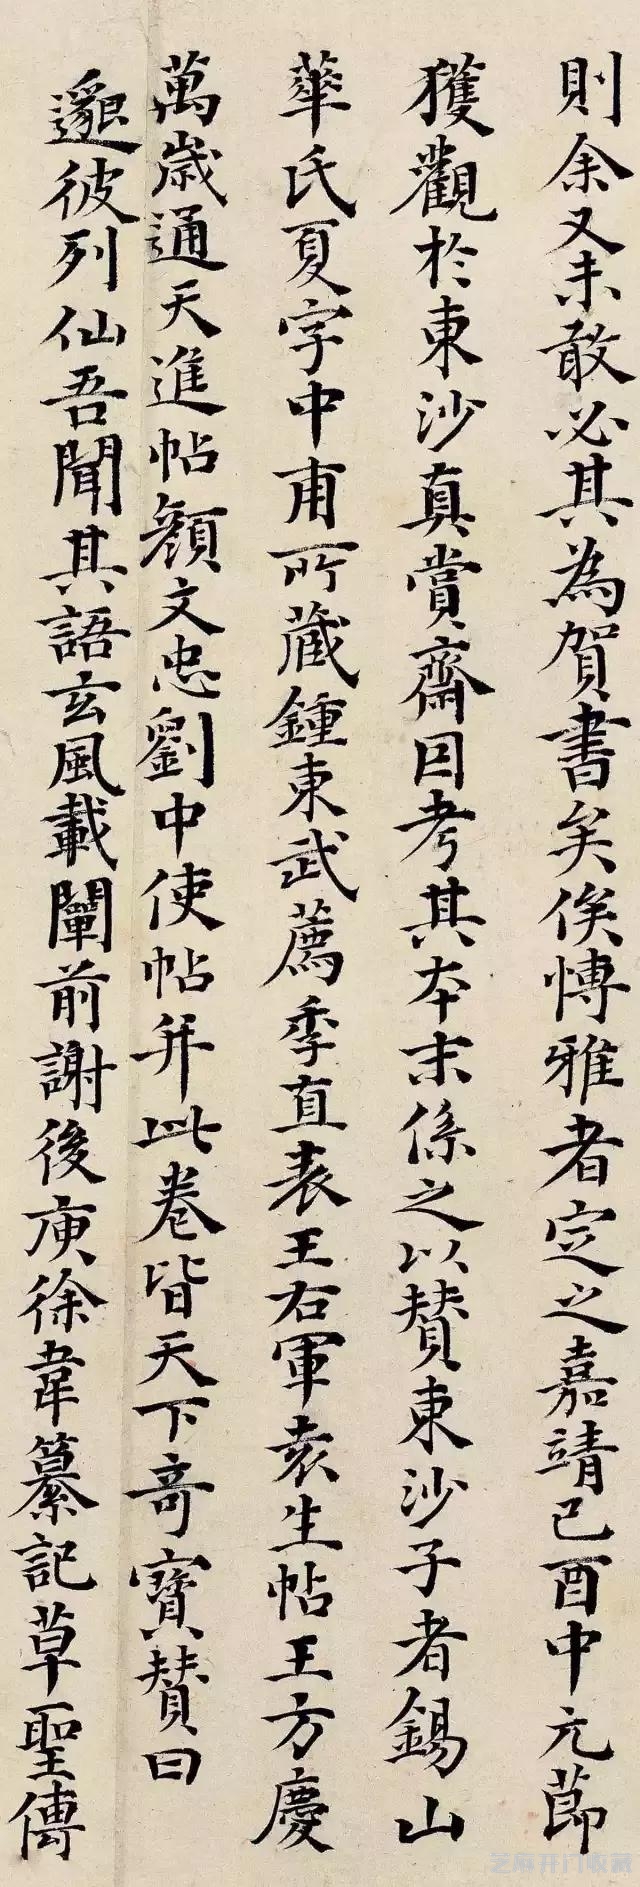 則余又未敢必其為賀書矣俟博雅者定之嘉靖己酉中元節
獲觀於東沙真賞齋因考其本末係之以贊東沙子者錫山
華氏夏字中甫所藏鍾東武薦季直表王右軍袁生帖王方慶
萬歲通天進帖顏文忠劉中使帖并此卷皆天下奇寶贊曰
邈彼列仙吾聞其語玄風載闡前謝後庾徐韋纂記草聖傳
芝麻开门收藏